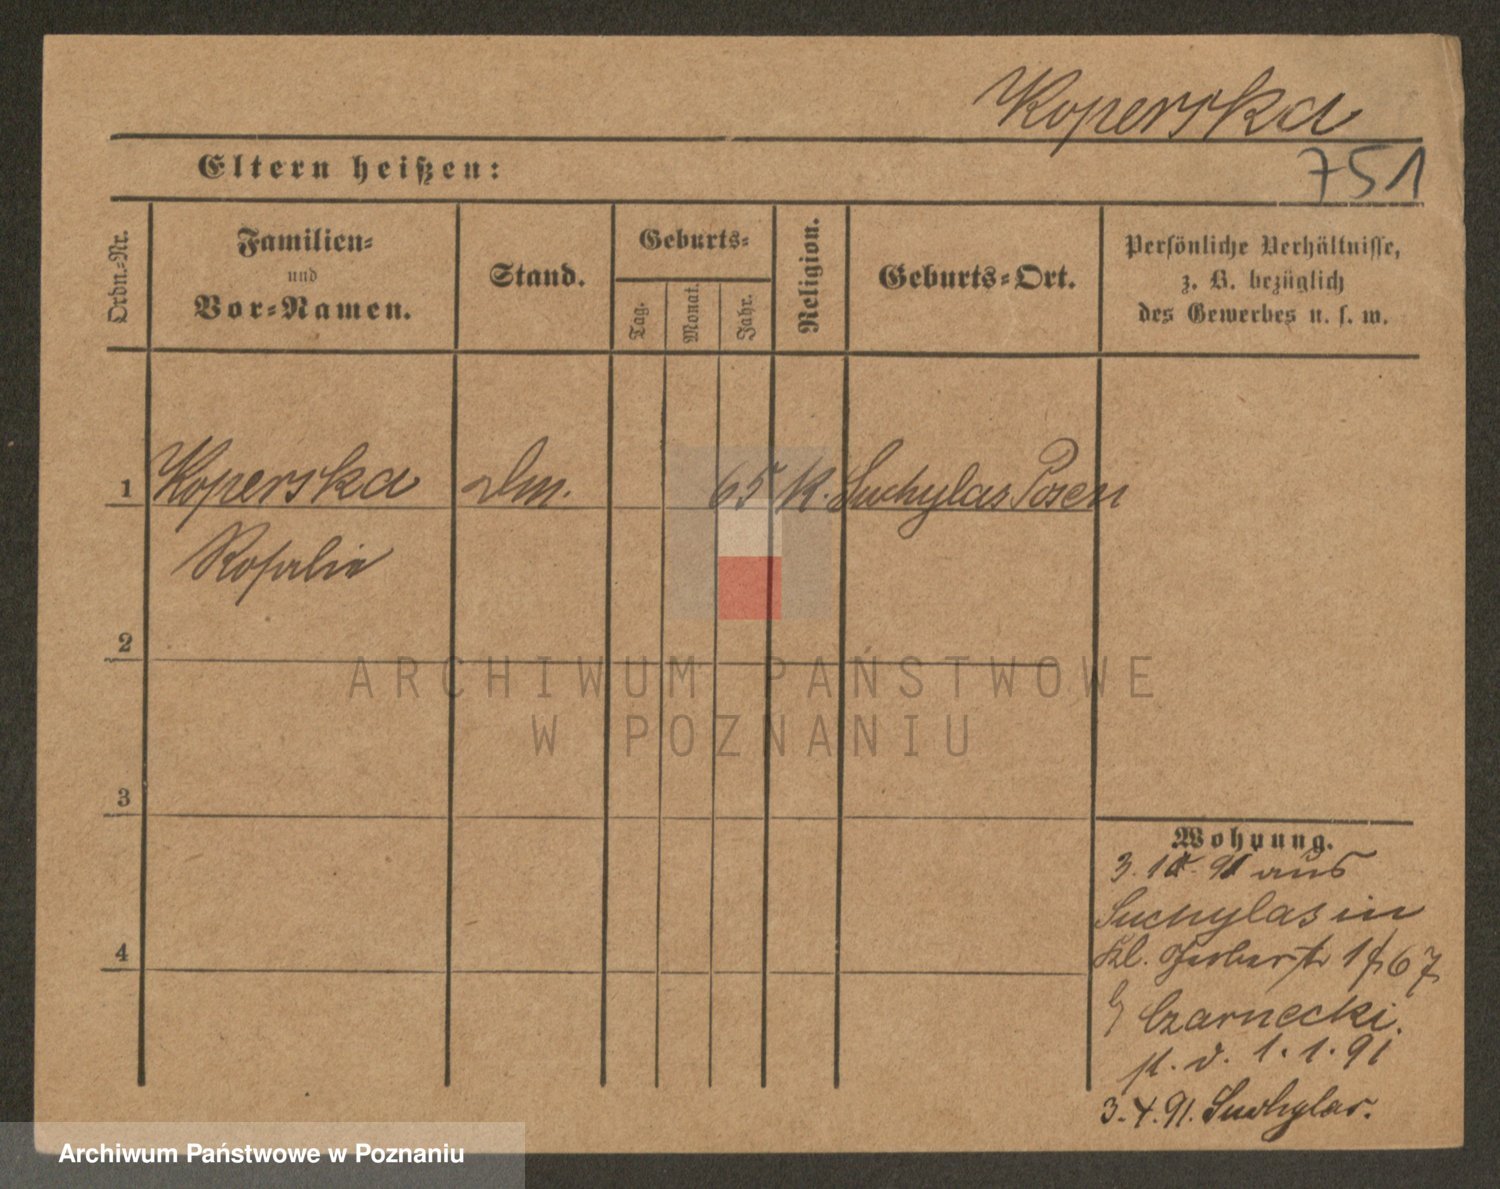 Koperska
751
Eltern heißen:
Ordn.-Nr.
Familien-
und
Vor-Namen.
Stand.
Geburts-
Tag.
Monat.
Jahr.
Religion.
Geburts-Ort.
Persönliche Verhältnisse,
z. B. bezüglich
des Gewerbes u. s. w.
1 Koperska Dm. 65 K. Suchylas Posen
Rosalie
2
3
4
ARCHIWUM PAŃSTWOWE
W POZNANIU
Wohnung.
3. 91 aus
Suchylas in
Kl. Gerberstr 67
Czarnecki.
v. 1.1.91
3.4.91. Suchylas.
Archiwum Państwowe w Poznaniu